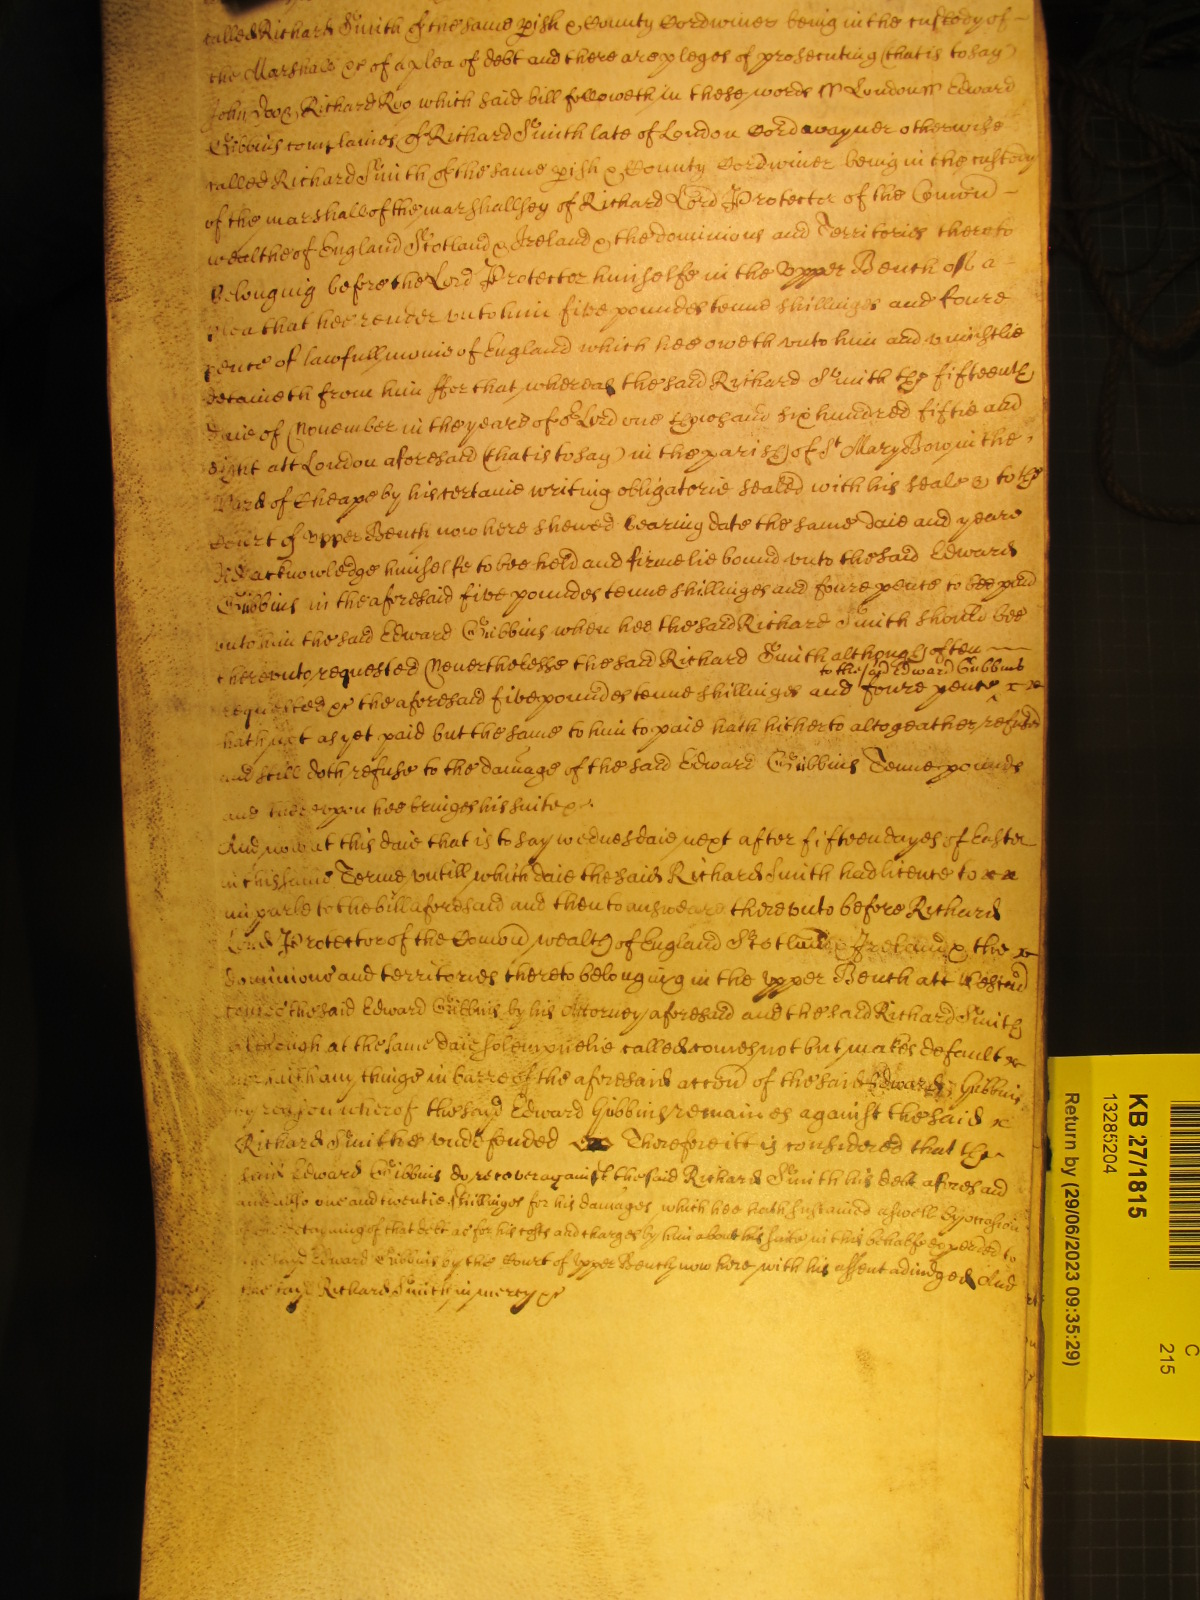 called Richard Smith of the same pish & County Cordwiner being in the custody of
the Marshall &c of a plea of debt and there are pleges of prosecuting (that is to say)
John Doo & Richard Roo which said bill followeth in these words ss London ss Edward
Gibbins complaines of Richard Smith late of London Cordwayner otherwise
called Richard Smith of the same pish & County Cordwiner being in the custody
of the marshall of the marshallsey of Richard Lord Protector of the Comon
wealthe of England Scotland & Ireland & the dominions and Territories thereto
Belonging before the Lord Protector himselfe in the Upper Bench of a
plea that hee render unto him five poundes tenne shillinges and foure
pence of lawfull monie of England which hee oweth unto him and uniustlie
detaineth from him ffor that whereas the said Richard Smith the fifteenth
daie of November in the yeare of or Lord one thowsand six hundred fiftie and
eight att London aforesaid (that is to say) in the parish of St Mary Bow in the
Ward of Cheape by his certaine writing obligatorie sealed with his seale & to the
Court of Upper Bench now here shewed bearing date the same daie and yeare
did acknowledge himselfe to bee held and firmelie bound unto the said Edward
Gibbins in the aforesaid five poundes tenne shillinges and foure pence to bee paid
unto him the said Edward Gibbins when hee the said Richard Smith should bee
thereunto requested Neverthelesse the said Richard Smith although often
to the said Edward Gibbins
requested &c the aforesaid five poundes tenne shillinges and foure pence
hath not as yet paid but the same to him to paie hath hitherto altogeather refused
and still doth refuse to the damage of the said Edward Gibbins Tenne pounds
and thereupon hee bringes his suite &c
And now at this daie that is to say wednesdaie next after fifteen dayes of Easter
in this same Terme untill which daie the said Richard Smith had licence to
imparle to the bill aforesaid and then to answeare thereunto before Richard
Lord Protector of the Comon wealth of England Scotland & Ireland & the
dominions and territories thereto belonging in the upper Bench att Westm
comes the said Edward Gibbins by his Attorney aforesaid and the said Richard Smith
although at the same daie solempnelie called comes not but makes default
nor saith any thinge in barre of the aforesaid accon of the said Edward Gibbins
by reason wherof the said Edward Gibbins remaines against the said
Richard Smithe undefended Therefore itt is considered that the
said Edward Gibbins do recover against the said Richard Smith his debt aforesaid
and also one and twentie shillinges for his damages which hee hath sustained aswell by occasion
of the detayning of that debt as for his costs and charges by him about his suite in this behalfe expended to
the sayd Edward Gibbins by the Court of Upper Bench now here with his assent adiudged And
the sayd Richard Smith in mercy &c
KB 27/1815
13285204
Return by (29/06/2023 09:35:29)
C
215